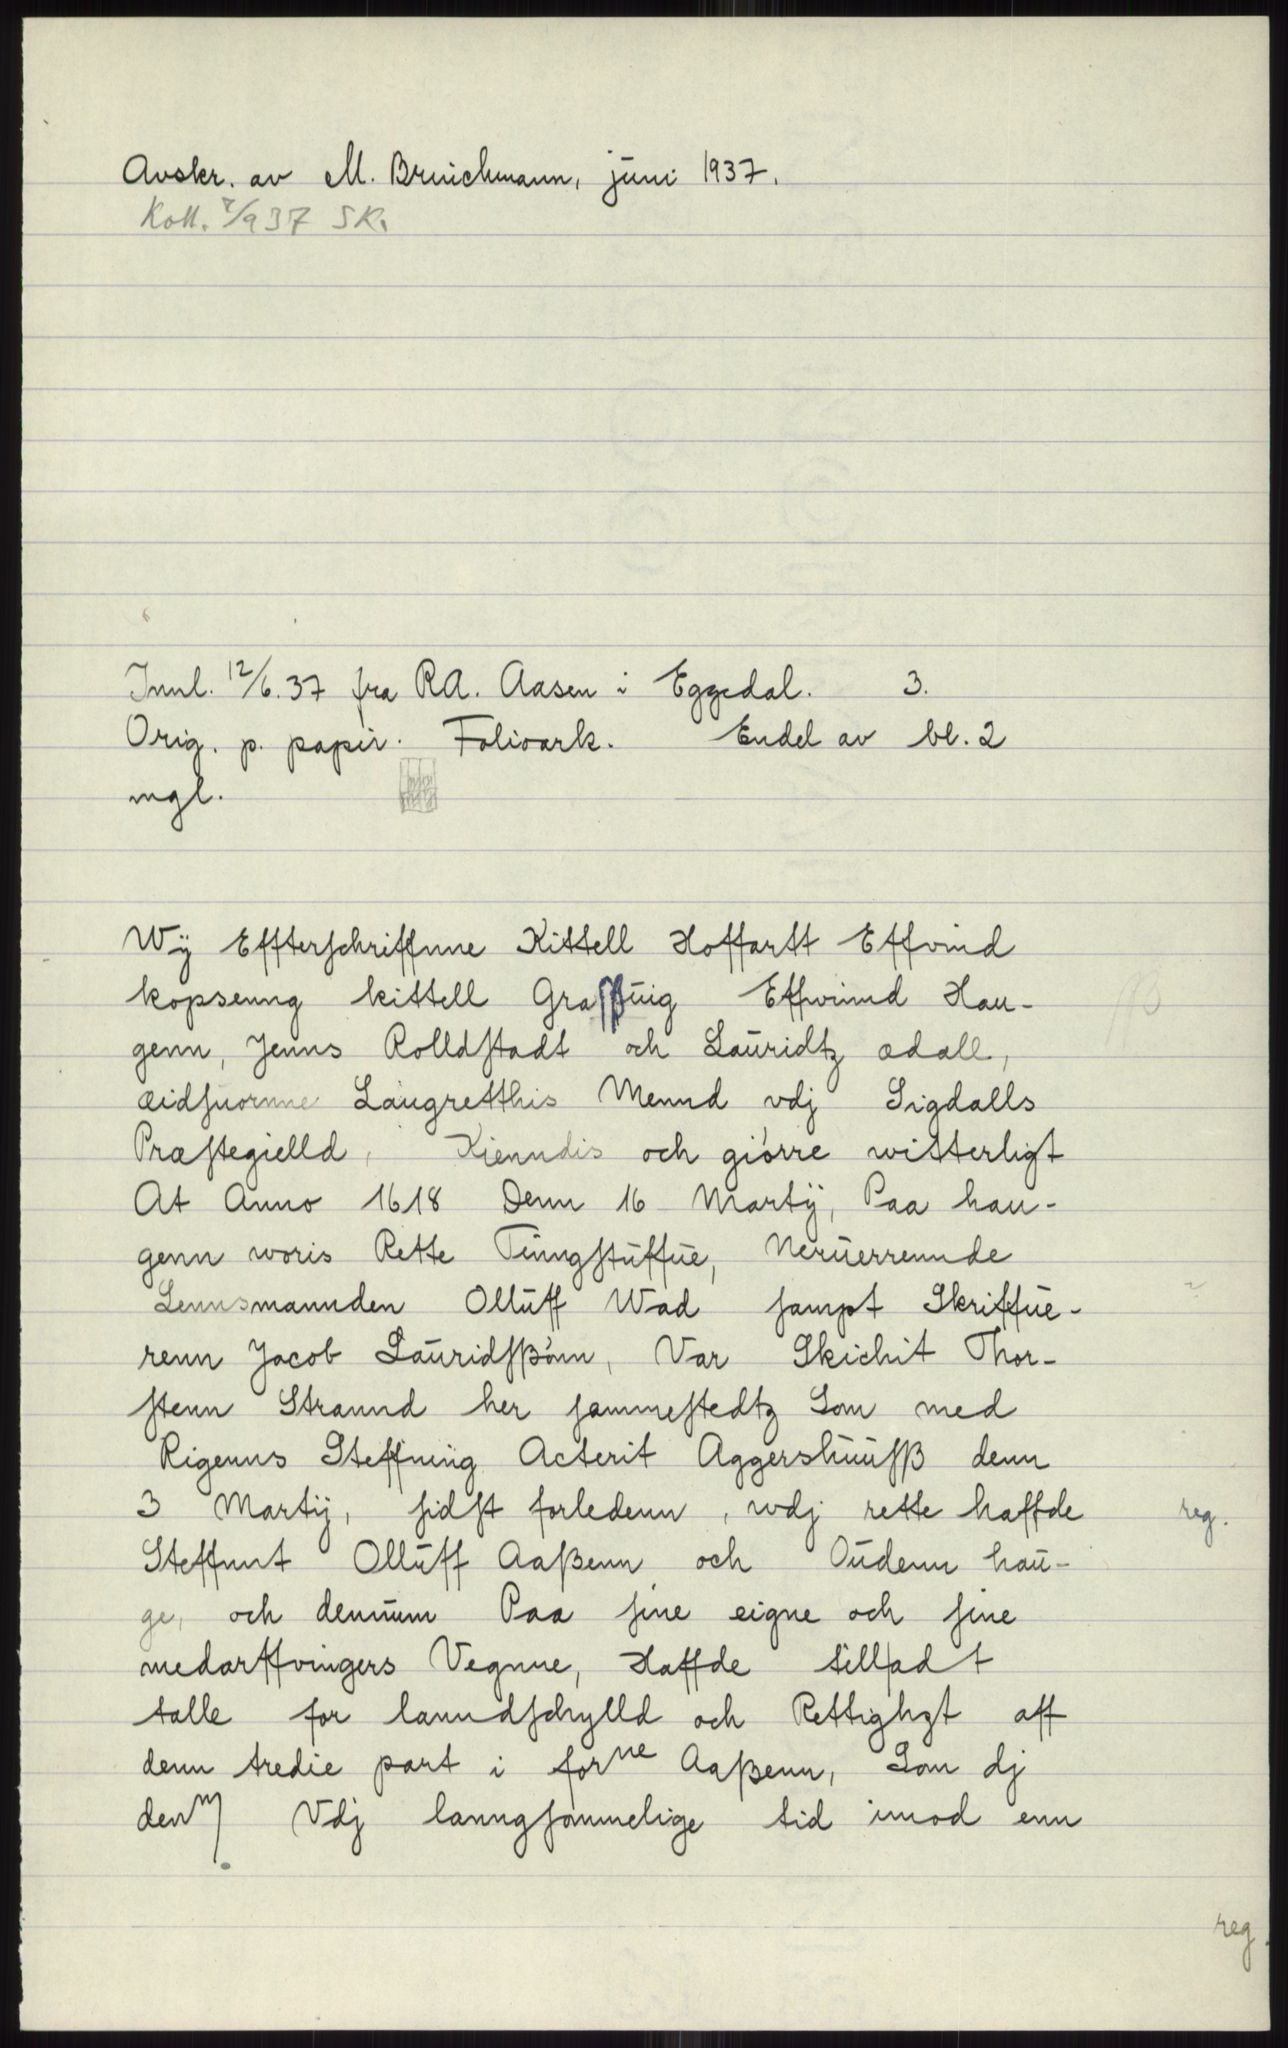 Avskr. av M. Bruichmann, juni 1937.
Koll. 7/937 SK.
Innl. 12/6.37 fra RA. Aasen i Eggedal. 3.
Orig. p. papir. Folioark. Endel av bl. 2
mgl.
Wÿ Effterschriffnne Kittell Hoffartt Effvind
kopsenng kittell Graffßuig Effwinnd Hau-
genn, Jenns Rolldstadt och Lauridtz adall,
æidsuornne Laugretthis Mennd vdj Sigdalls
Præstegielld, Kienndis och giörre witterligt
At Anno 1618 Denn 16 Martÿ, Paa hau-
genn woris Rette Tinngstuffue, Neruerrennde
Lennsmannden Olluff Wad sampt Skriffue-
renn Jacob Lauridsßönn, Var Skichit Thor-
stenn Strannd her sammestedtz Som med
Rigenns Steffning Acterit Aggershuusß denn
3 Martÿ, sidst forledenn, wdj rette haffde reg.
Steffnnt Olluff Aaßenn och Oudenn hau-
ge, och dennum Paa sine eigne och sine
medarffvingers Vegnne, Haffde tilladt
talle for lanndschylld och Rettighgt aff
denn tredie part i forne Aaßenn, Som dj
denm Vdj lanngsommelige tid imod enn
reg.